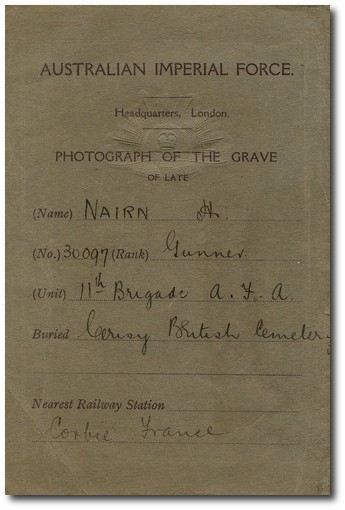 AUSTRALIAN IMPERIAL FORCE.
Headquarters, London.
PHOTOGRAPH OF THE GRAVE
OF LATE
(Name) NAIRN H.
(No.) 30097 (Rank) Gunner.
(Unit) 11th Brigade A. F. A.
Buried Cerisy British Cemetery
Nearest Railway Station
Corbie France